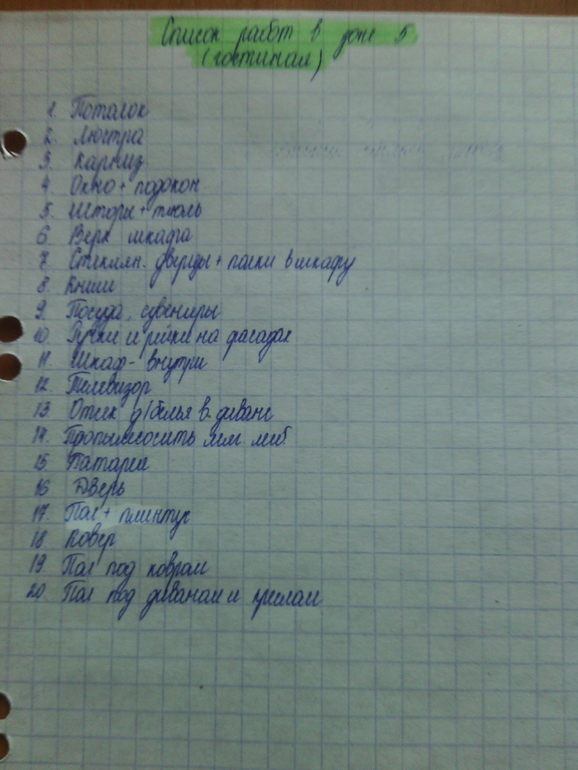 Список работ в зоне 5
(гостиная)
1. Потолок
2. Люстра
3. Карниз
4. Окно + подокон
5. Шторы + тюль
6 Верх шкафа
7. Стеклян. дверцы + полки в шкафу
8. Книги
9. Посуда, сувениры
10. Ручки и рейки на фасадах
11. Шкаф - внутри
12. Телевизор
13 Отсек д/белья в диване
14. Пропылесосить мяг. меб
15. Батареи
16 Дверь
17. Пол + плинтус
18 Ковер
19 Пол под ковром
20 Пол под диваном и креслом